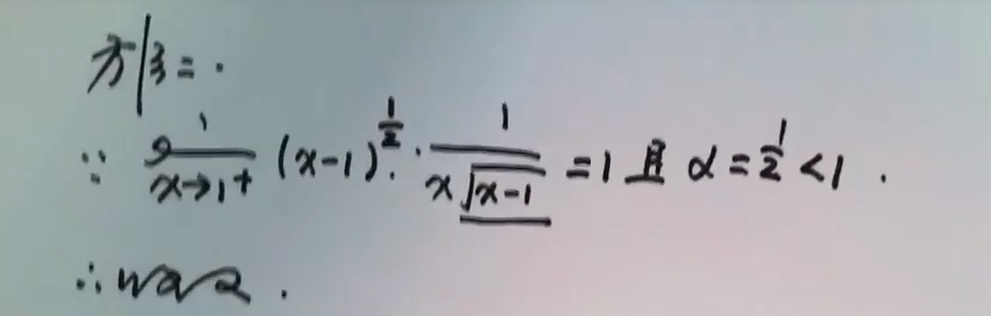 方|3 = .
∵ lim x→1+ (x-1)^{1/2} · 1/(x√(x-1)) = 1 且 α = 1/2 < 1 .
∴